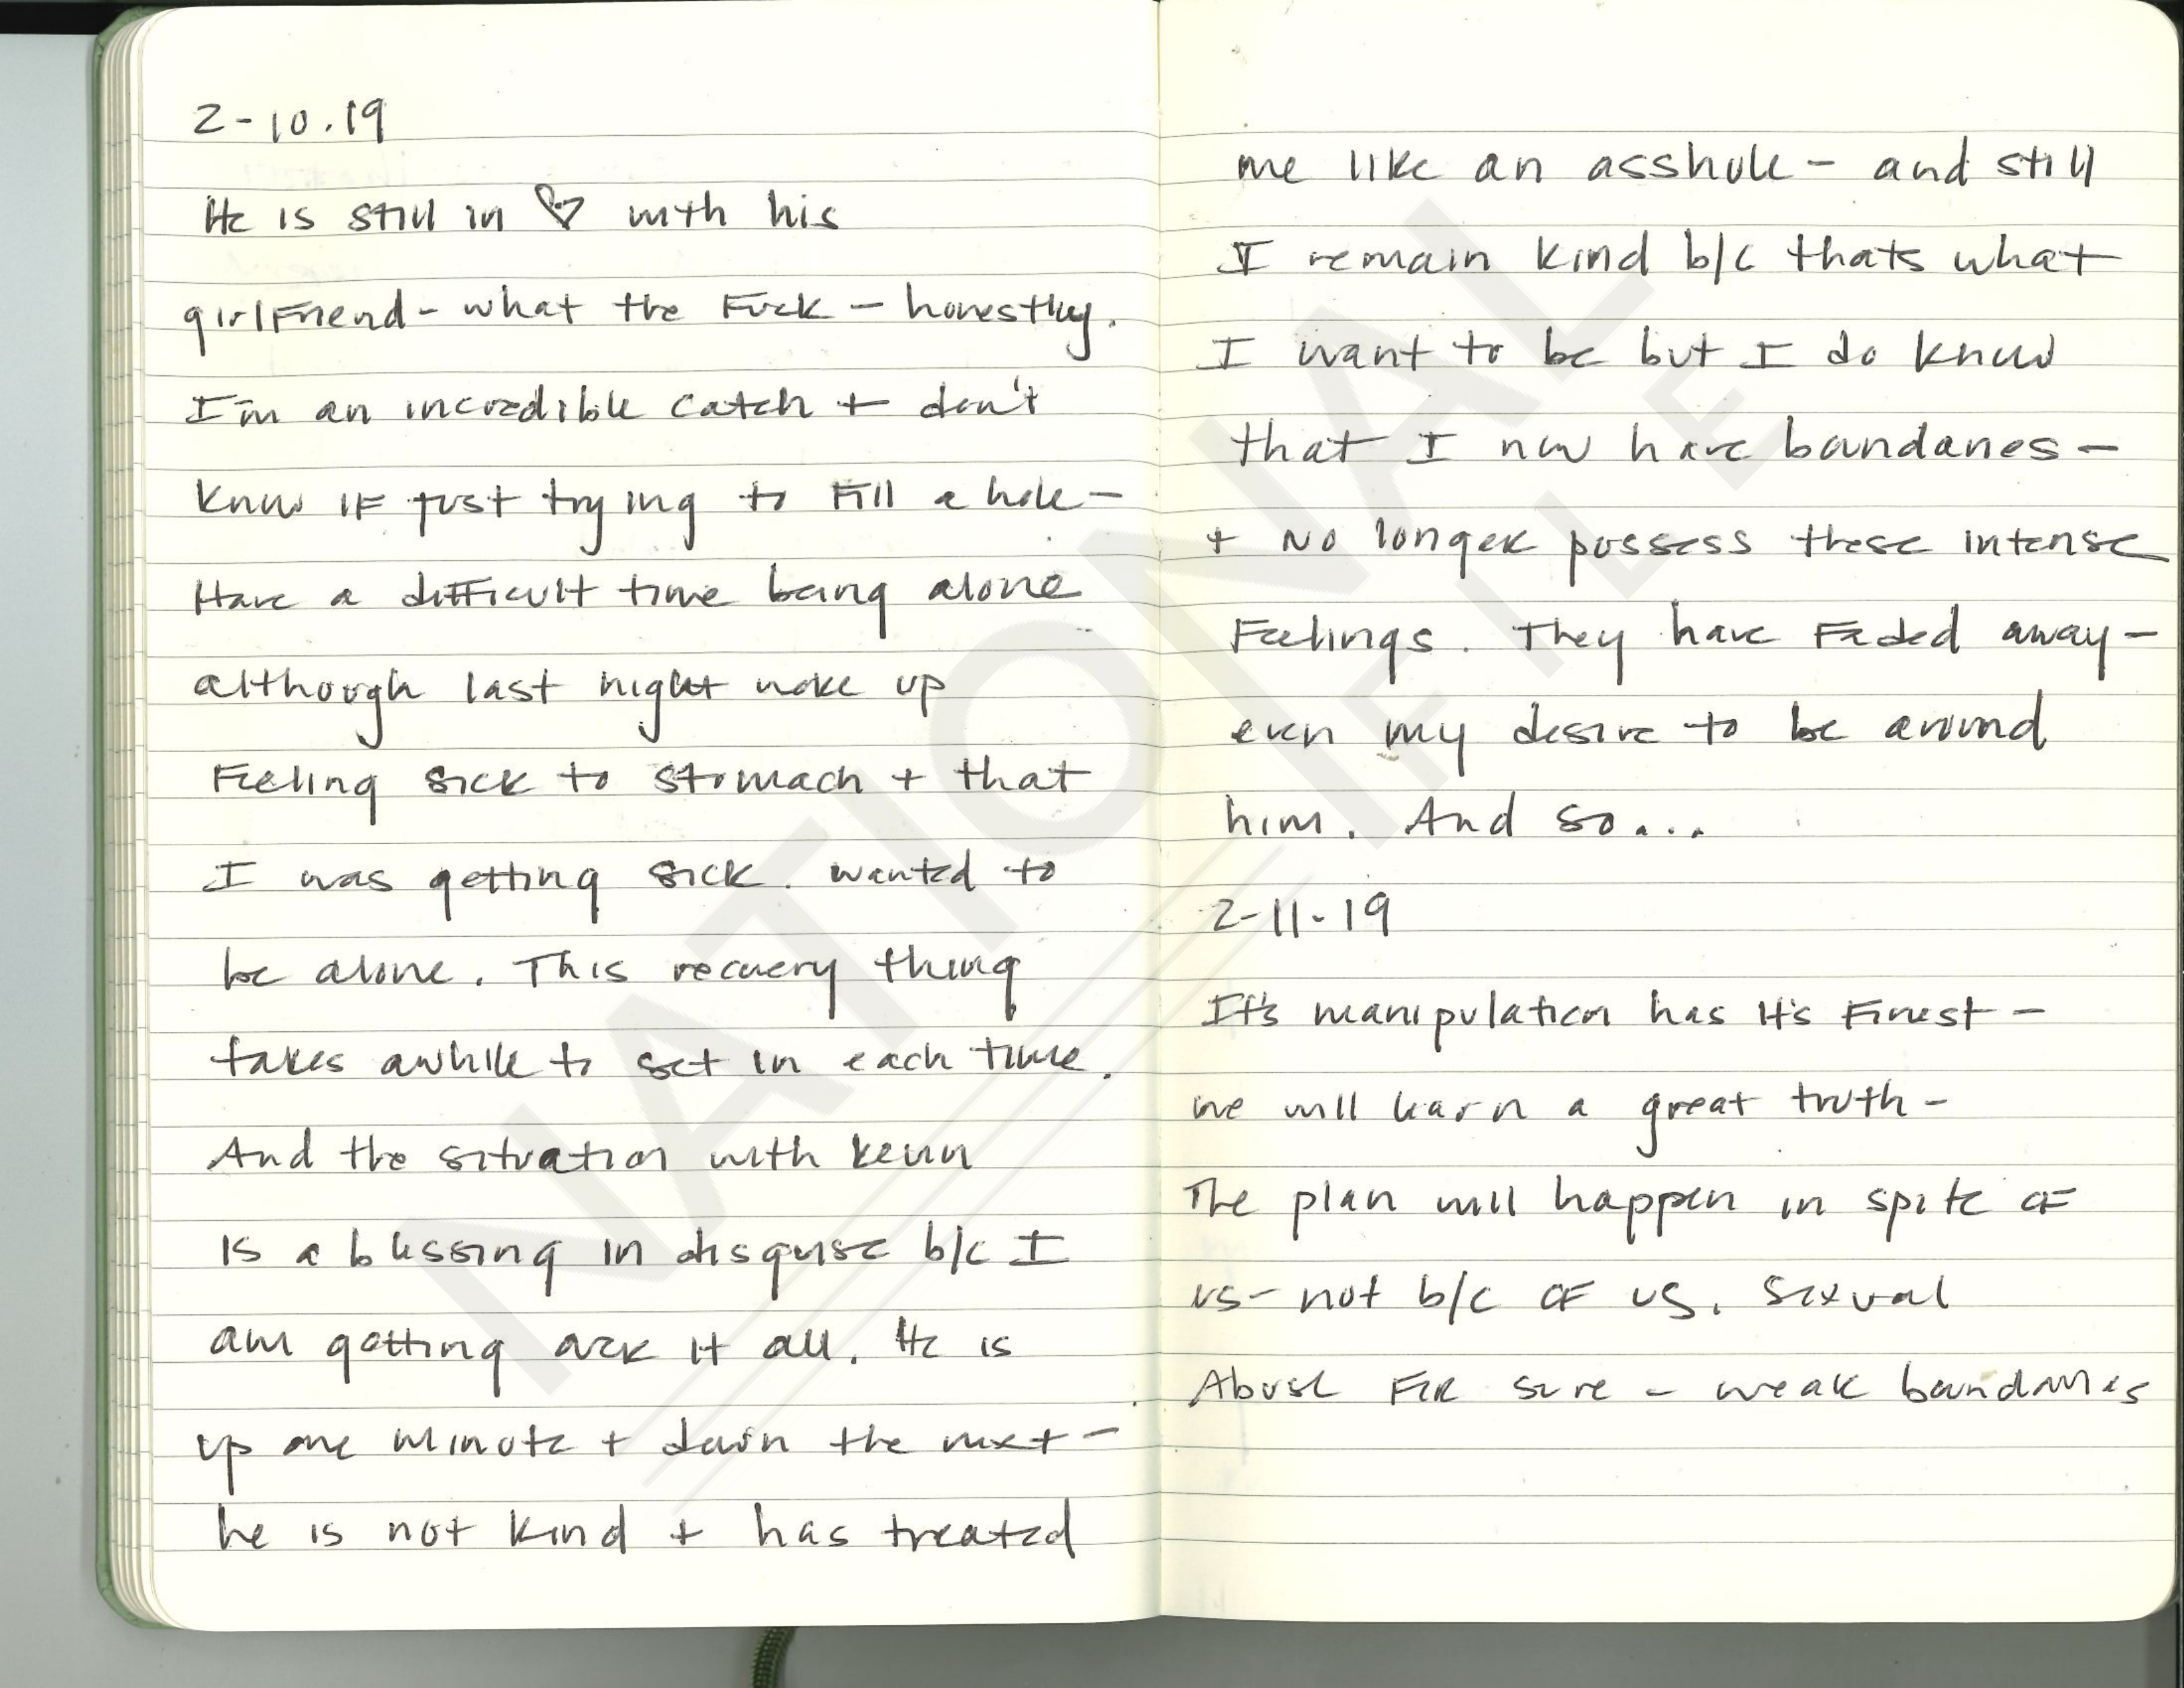 2-10.19
He is still in ♡ with his
girlfriend - what the Fuck - honestly.
I'm an incredible catch + don't
know IF just trying to Fill a hole -
Have a difficult time being alone
although last night woke up
Feeling sick to stomach + that
I was getting sick. wanted to
be alone. This recovery thing
takes awhile to set in each time.
And the situation with Kevin
is a blessing in disguise b/c I
am getting it all. He is
up one minute + down the next -
he is not kind + has treated
me like an asshole - and still
I remain kind b/c thats what
I want to be but I do know
that I now have -
+ No longer possess these intense
Feelings. They have Faded away -
even my desire to be around
him. And so...
2-11-19
It's manipulation has it's Finest -
we will learn a great truth -
The plan will happen in spite OF
us - not b/c OF us. Sexual
Abuse FOR sure - weak
NATIONAL
FILE